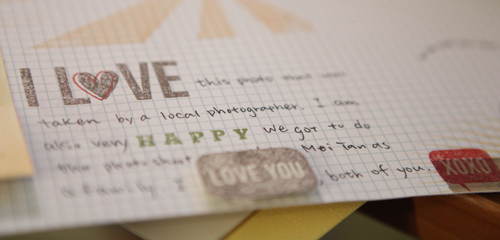 I LOVE this photo
taken by a local photographer. I am
also very HAPPY we got to do
this photoshoot Mei Tan as
a family. I LOVE YOU both of you. XOXO